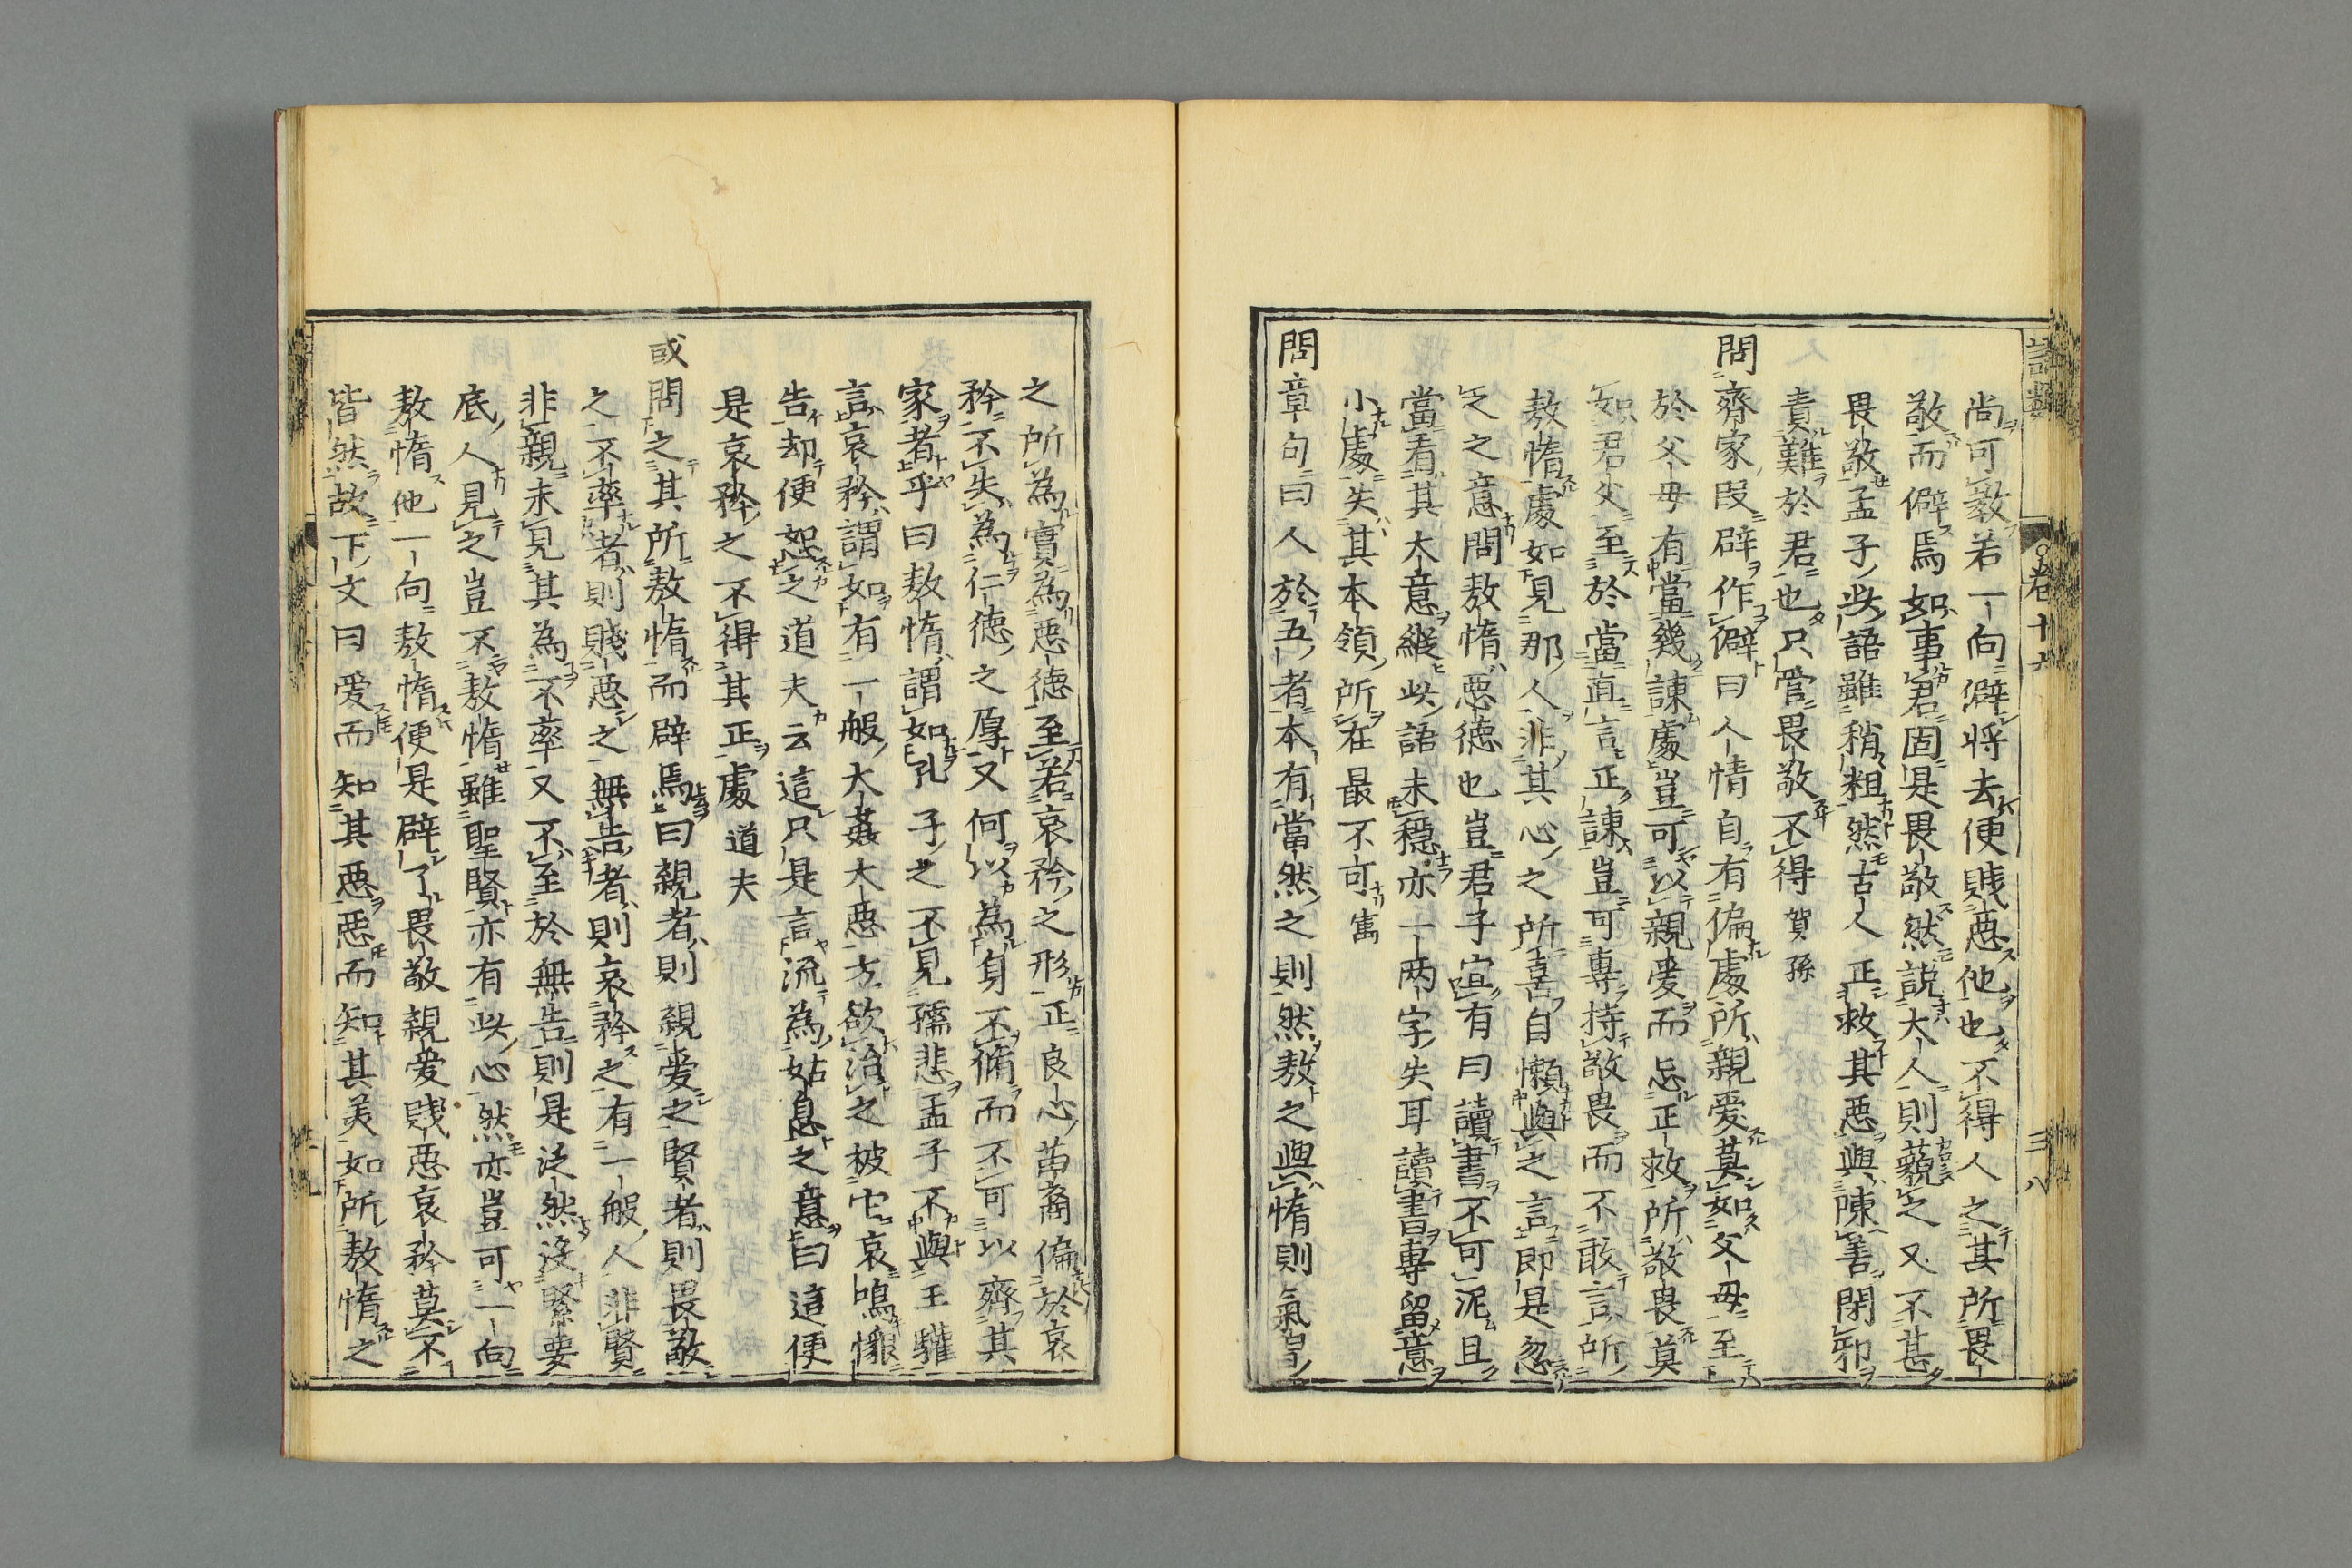 語類
卷十六
三八
尚可教若一向僻將去便賤惡他也不得人之其所畏
敬而僻焉如事君固是畏敬然說大人則藐之又不甚
畏敬孟子此語雖稍粗然古人正救其惡與陳善閉邪
責難於君也只管畏敬不得賀孫
問齊家段辟作僻曰人情自有偏處所親愛莫如父母至
於父母有當幾諫處豈可以親愛而忘正救所敬畏莫
如君父至於當直言正諫豈可專持敬畏而不敢言所
敖惰處如見那人非其心之所喜自懶與之言即是忽
之之意問敖惰惡德也豈君子宜有曰讀書不可泥且
當看其大意縱此語未穩亦一兩字失耳讀書專留意
小處失其本領所在最不可㝢
問章句曰人於五者本有當然之則然敖之與惰則氣習
之所為實為惡德至若哀矜之形正良心苗裔偏於哀
矜不失為仁德之厚又何以為身不脩而不可以齊其
家者乎曰敖惰謂如孔子之不見孺悲孟子不與王驩
言哀矜謂如有一般大姦大惡方欲治之被它哀鳴懇
告却便恕之道夫云這只是言流為姑息之意曰這便
是哀矜之不得其正處道夫
或問之其所敖惰而辟焉曰親者則親愛之賢者則畏敬
之不率者則賤惡之無告者則哀矜之有一般人非賢
非親未見其為不率又不至於無告則是泛然沒緊要
底人見之豈不敖惰雖聖賢亦有此心然亦豈可一向
敖惰他一向敖惰便是辟了畏敬親愛賤惡哀矜莫不
皆然故下文曰愛而知其惡惡而知其美如所敖惰之